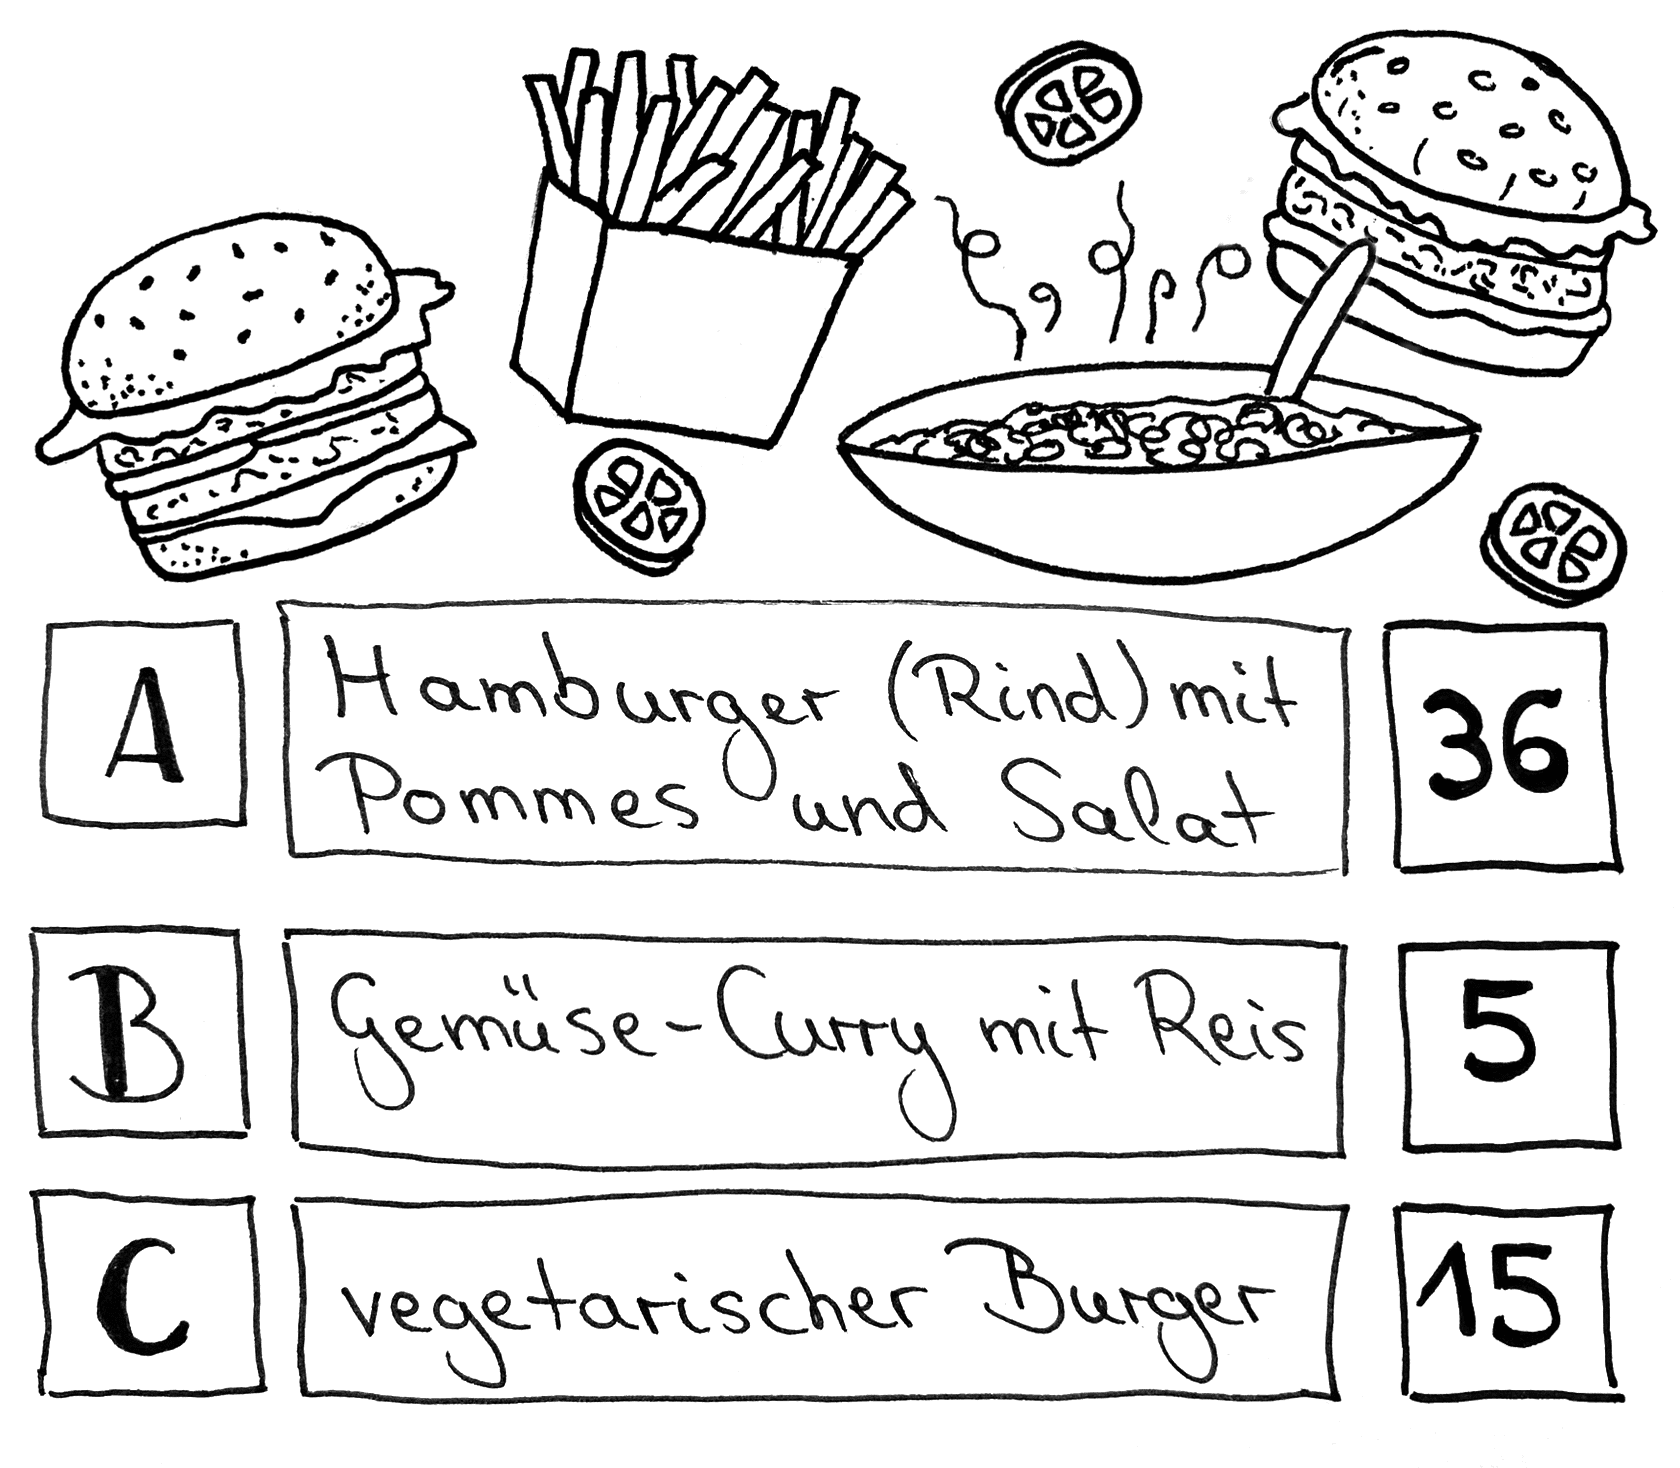 A
Hamburger (Rind) mit
Pommes und Salat
36
B
Gemüse-Curry mit Reis
5
C
vegetarischer Burger
15